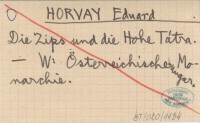 HORVAY Eduard
Die Zips und die Hohe Tátra.
— W: Österreichische Mo-
narchie.